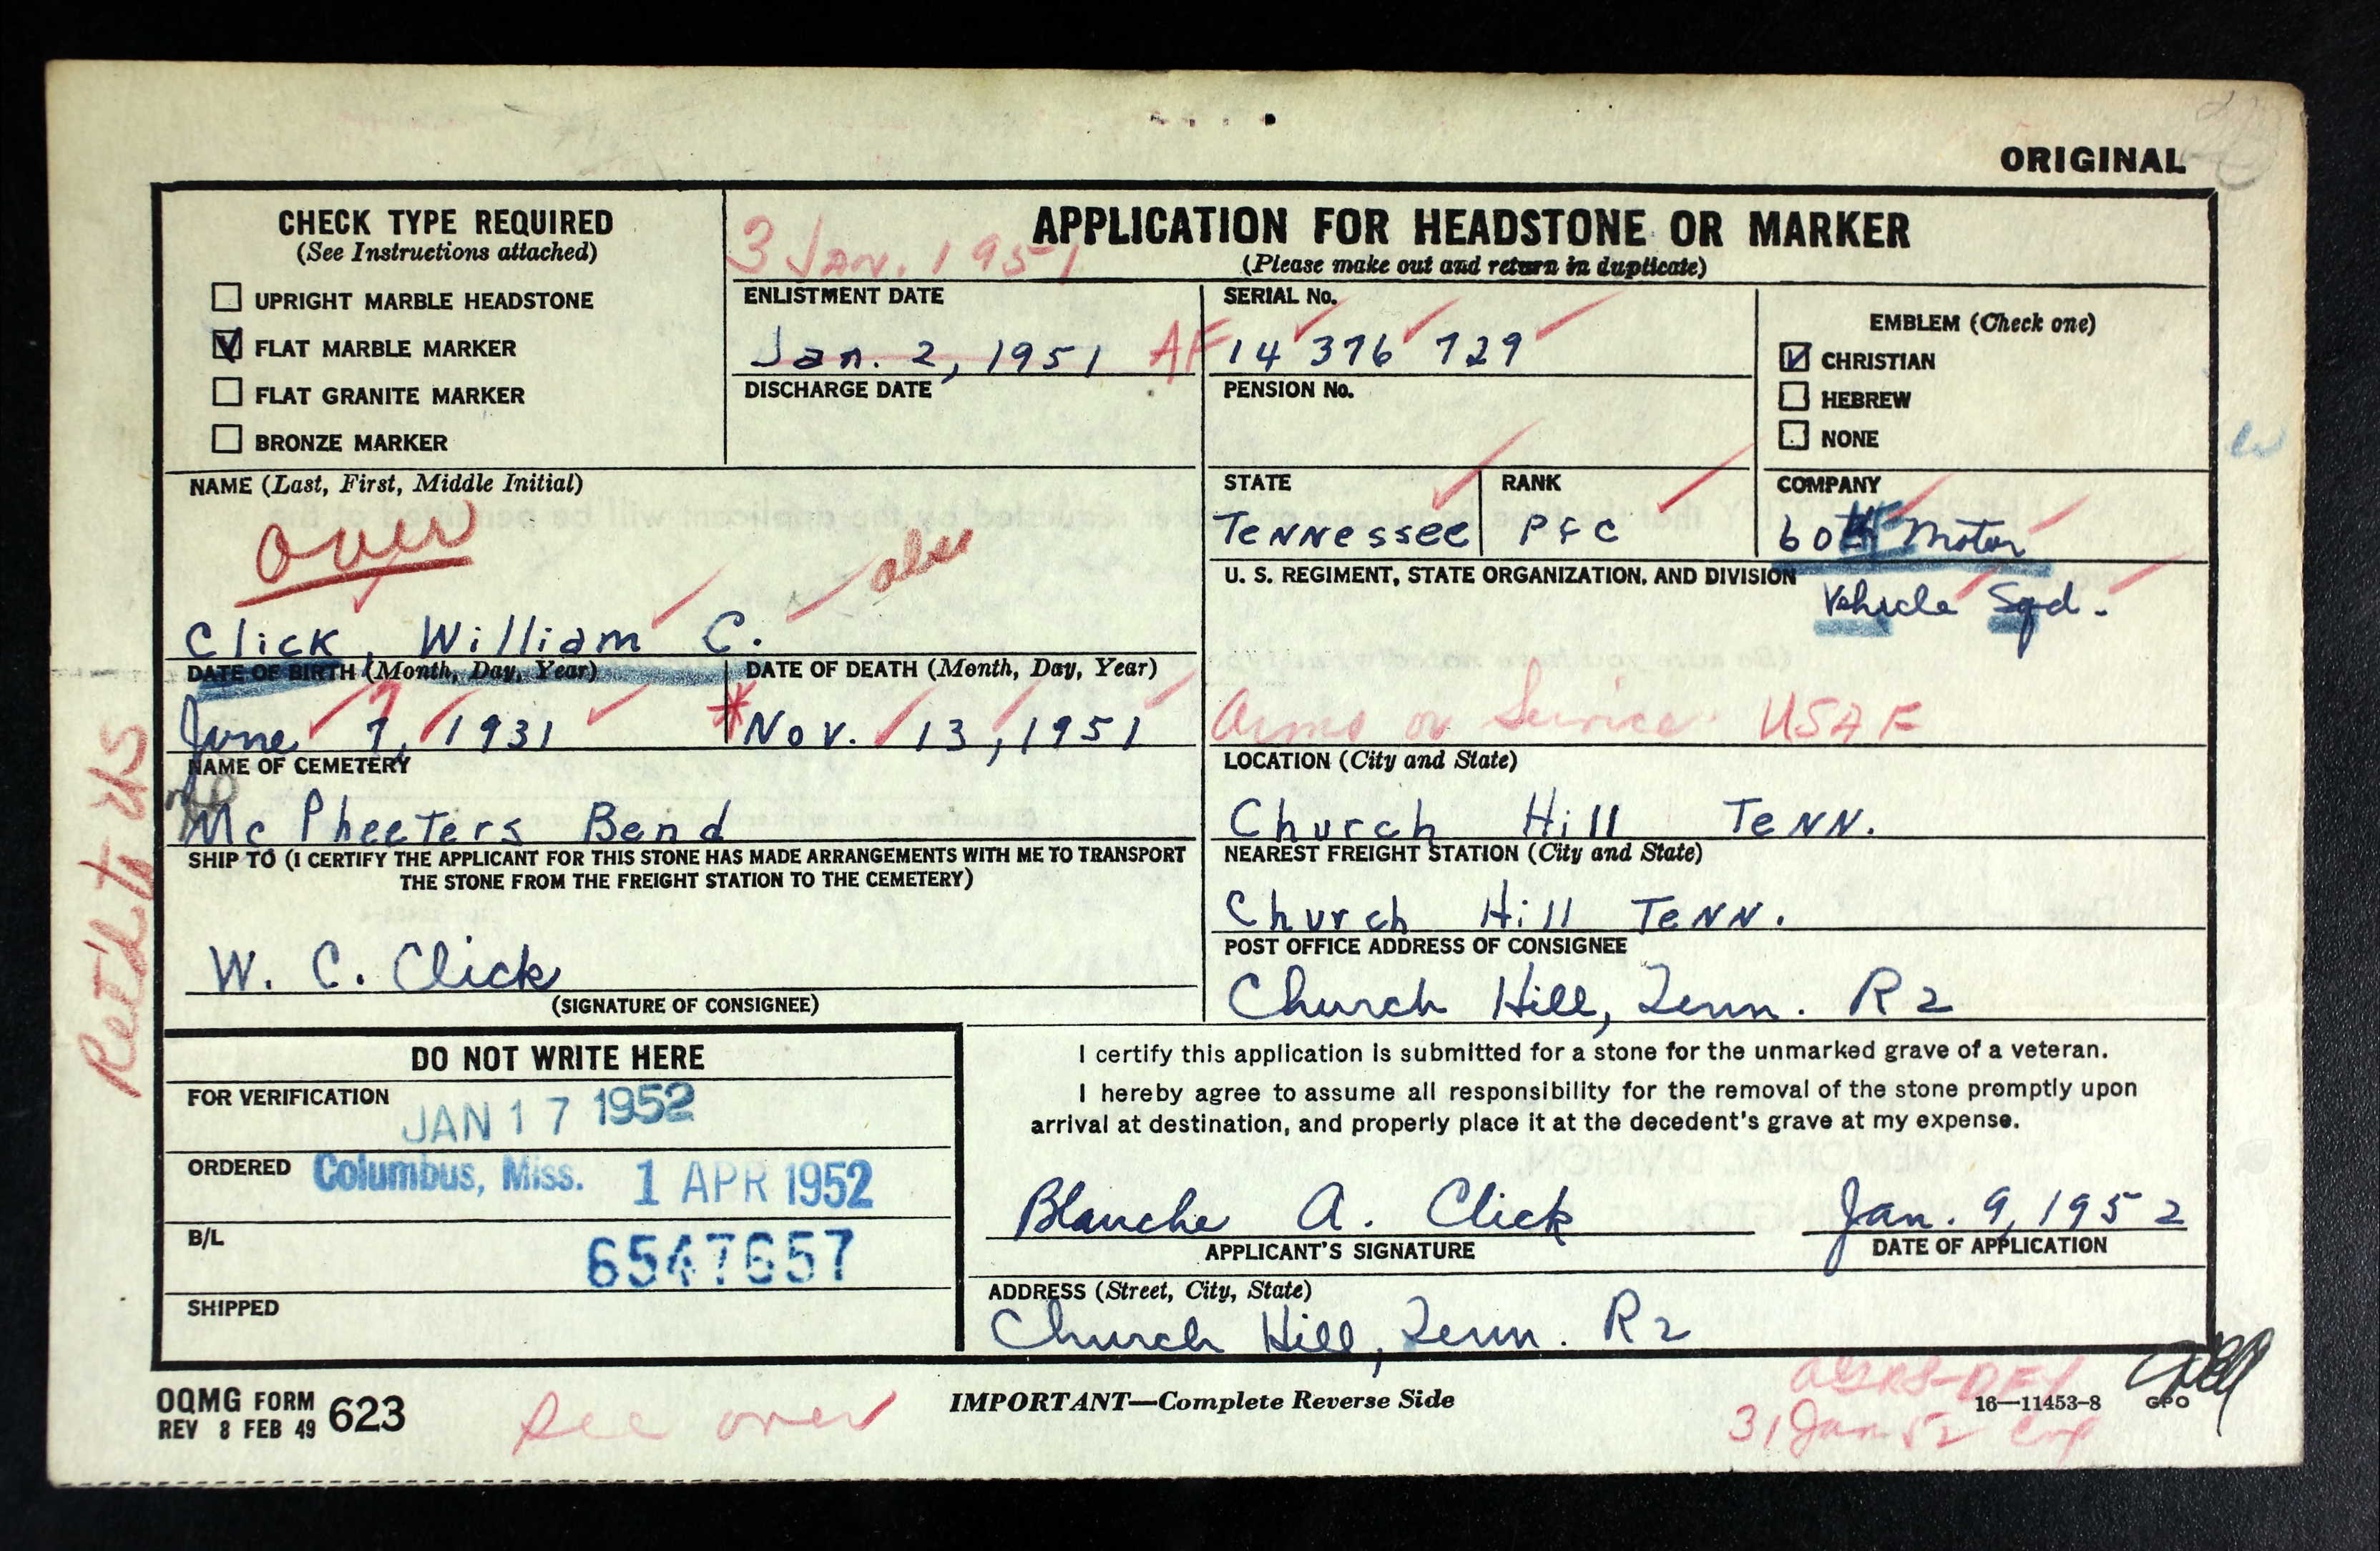 ORIGINAL
CHECK TYPE REQUIRED
(See Instructions attached)
UPRIGHT MARBLE HEADSTONE
FLAT MARBLE MARKER
FLAT GRANITE MARKER
BRONZE MARKER
APPLICATION FOR HEADSTONE OR MARKER
(Please make out and return in duplicate)
3 Jan. 1951
ENLISTMENT DATE
Jan. 2, 1951
DISCHARGE DATE
SERIAL No.
AF 14 376 729
PENSION No.
EMBLEM (Check one)
CHRISTIAN
HEBREW
NONE
NAME (Last, First, Middle Initial)
over
Click, William C.
STATE
Tennessee
RANK
PFC
COMPANY
60th Motor
Vehicle Sqd.
U. S. REGIMENT, STATE ORGANIZATION, AND DIVISION
Arms or Service USAF
DATE OF BIRTH (Month, Day, Year)
June 7, 1931
DATE OF DEATH (Month, Day, Year)
*Nov. 13, 1951
NAME OF CEMETERY
Mc Pheeters Bend
LOCATION (City and State)
Church Hill Tenn.
SHIP TO (I CERTIFY THE APPLICANT FOR THIS STONE HAS MADE ARRANGEMENTS WITH ME TO TRANSPORT
THE STONE FROM THE FREIGHT STATION TO THE CEMETERY)
W. C. Click
(SIGNATURE OF CONSIGNEE)
NEAREST FREIGHT STATION (City and State)
Church Hill Tenn.
POST OFFICE ADDRESS OF CONSIGNEE
Church Hill, Tenn. R2
Ret'd to us
DO NOT WRITE HERE
FOR VERIFICATION
JAN 17 1952
ORDERED
Columbus, Miss. 1 APR 1952
B/L
6547657
SHIPPED
I certify this application is submitted for a stone for the unmarked grave of a veteran.
I hereby agree to assume all responsibility for the removal of the stone promptly upon
arrival at destination, and properly place it at the decedent's grave at my expense.
Blanche A. Click
APPLICANT'S SIGNATURE
Jan. 9, 1952
DATE OF APPLICATION
ADDRESS (Street, City, State)
Church Hill, Tenn. R2
OQMG FORM 623
REV 8 FEB 49
See over
IMPORTANT—Complete Reverse Side
16—11453-8 GPO
31 Jan 52